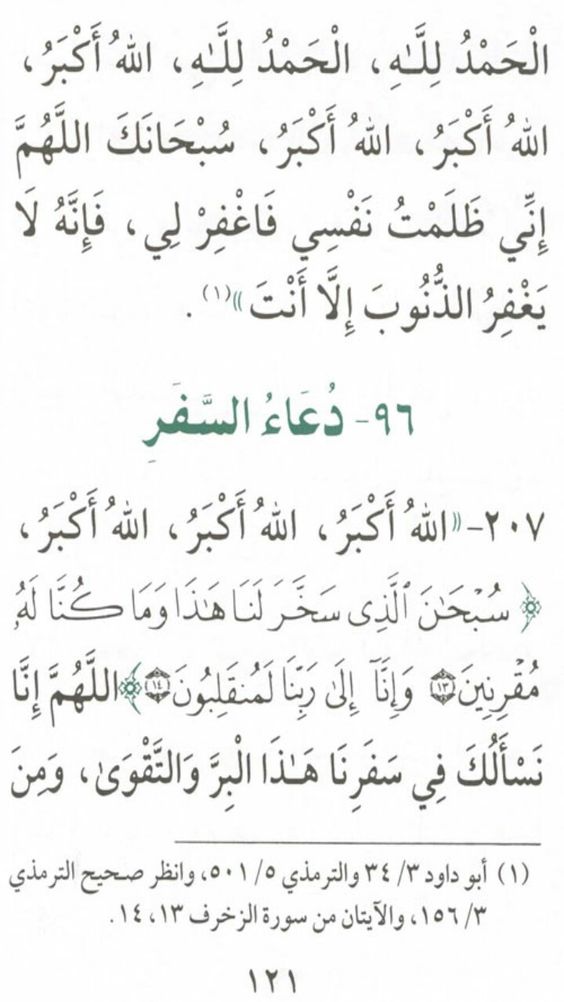 الْحَمْدُ لِلَّـٰهِ، الْحَمْدُ لِلَّـٰهِ، اللهُ أَكْبَرُ،
اللهُ أَكْبَرُ، اللهُ أَكْبَرُ، سُبْحَانَكَ اللَّهُمَّ
إِنِّي ظَلَمْتُ نَفْسِي فَاغْفِرْ لِي، فَإِنَّهُ لَا
يَغْفِرُ الذُّنُوبَ إِلَّا أَنْتَ»(١).
٩٦- دُعَاءُ السَّفَرِ
٢٠٧- «اللهُ أَكْبَرُ، اللهُ أَكْبَرُ، اللهُ أَكْبَرُ،
﴿ سُبْحَـٰنَ ٱلَّذِى سَخَّرَ لَنَا هَـٰذَا وَمَا كُنَّا لَهُۥ
مُقْرِنِينَ ١٣ وَإِنَّآ إِلَىٰ رَبِّنَا لَمُنقَلِبُونَ ١٤﴾ اللَّهُمَّ إِنَّا
نَسْأَلُكَ فِي سَفَرِنَا هَـٰذَا الْبِرَّ وَالتَّقْوَىٰ، وَمِنَ
(١) أبو داود ٣/ ٣٤ والترمذي ٥/ ٥٠١، وانظر صحيح الترمذي
٣/ ١٥٦، والآيتان من سورة الزخرف ١٣، ١٤.
١٢١